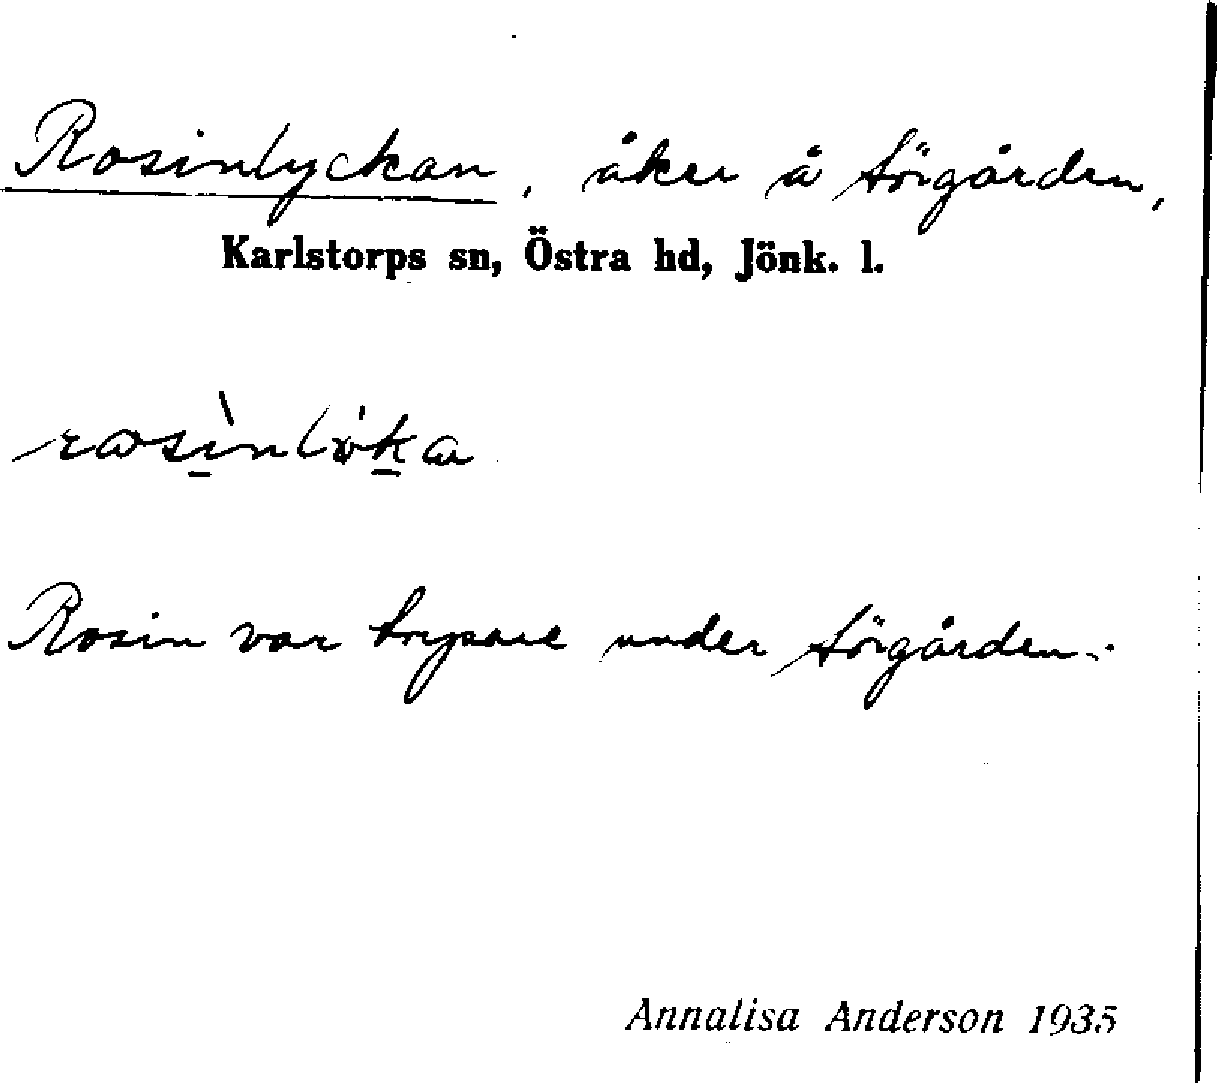 Rosinlyckan, åker å Sörgården,
Karlstorps sn, Östra hd, Jönk. l.
Rosin var brysare under Sörgården.
Annalisa Anderson 1935